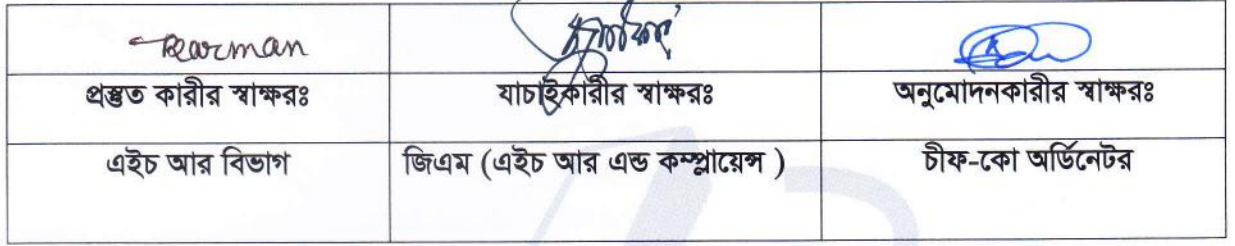 Barman
প্রস্তুত কারীর স্বাক্ষরঃ যাচাইকারীর স্বাক্ষরঃ অনুমোদনকারীর স্বাক্ষরঃ
এইচ আর বিভাগ জিএম (এইচ আর এন্ড কমপ্লায়েন্স ) চীফ-কো অর্ডিনেটর